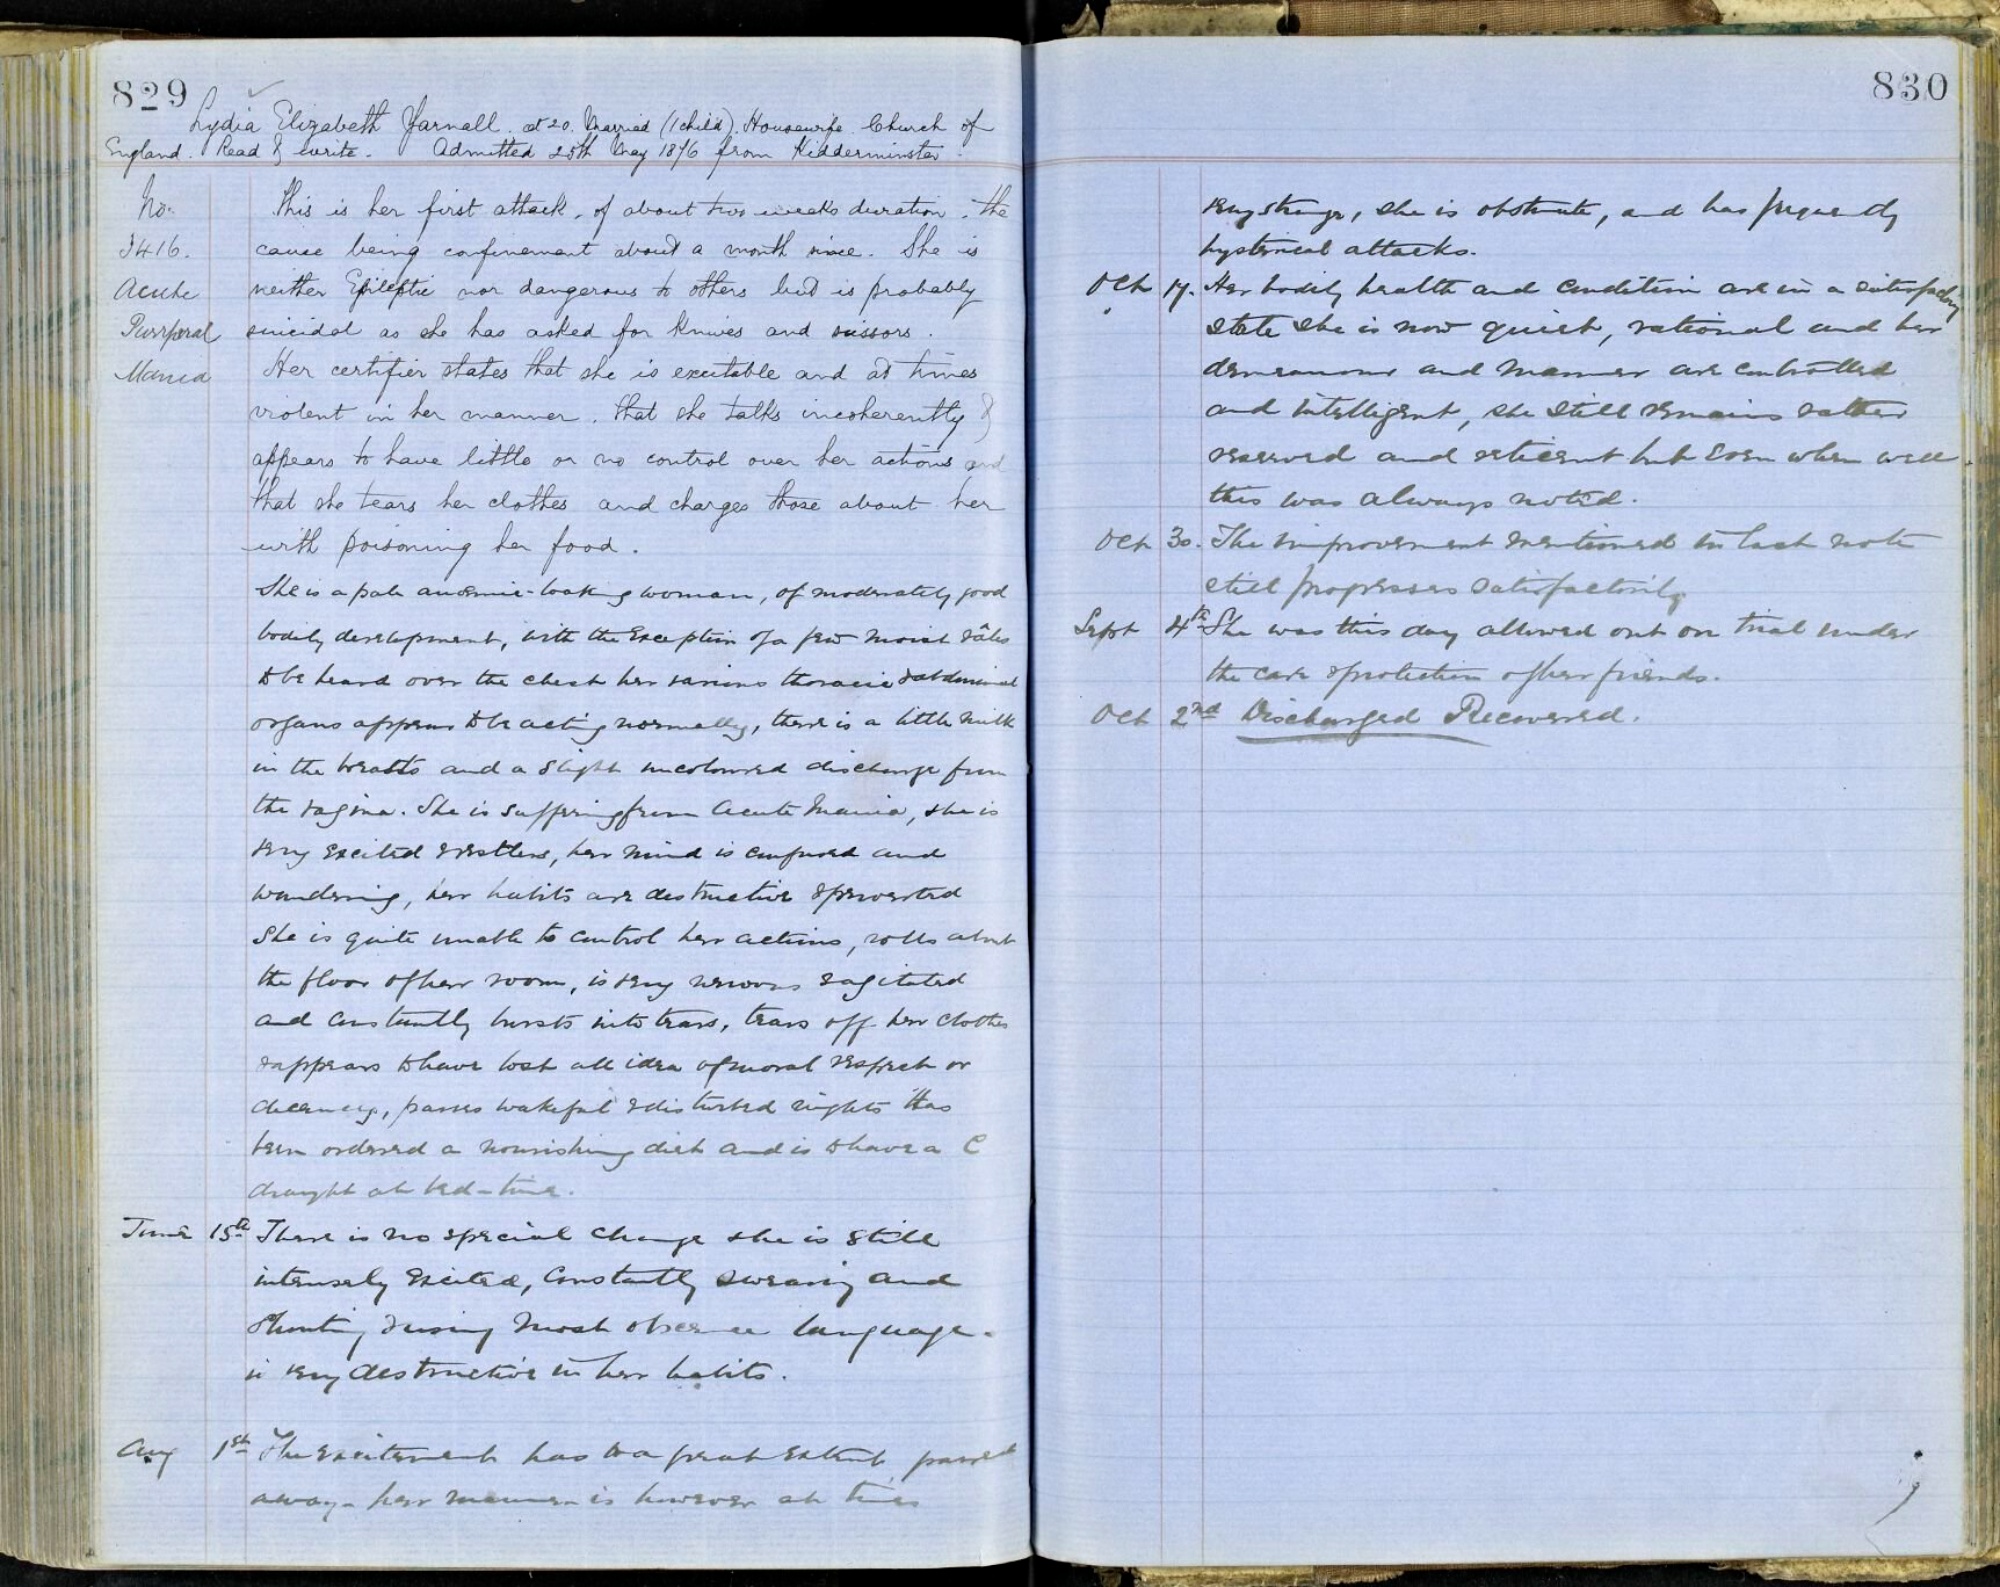 829
Lydia Elizabeth Yarnall. æt 20. Married (1 child). Housewife. Church of
England. Read & write. Admitted 25th May 1876 from Kidderminster.
No.
3416.
Acute
Puerperal
Mania
This is her first attack, of about two weeks duration, the
cause being confinement about a month since. She is
neither Epileptic nor dangerous to others but is probably
suicidal as she has asked for knives and scissors.
Her certifier states that she is excitable and at times
violent in her manner. That she talks incoherently &
appears to have little or no control over her actions and
that she tears her clothes and charges those about her
with poisoning her food.
She is a pale anaemic-looking woman, of moderately good
bodily development, with the exception of a few moist râles
to be heard over the chest her various thoracic & abdominal
organs appear to be acting normally, there is a little milk
in the breasts and a slight uncoloured discharge from
the vagina. She is suffering from Acute Mania, she is
very excited & restless, her mind is confused and
wandering, her habits are destructive & perverted
She is quite unable to control her actions, rolls about
the floor of her room, is very nervous & agitated
and constantly bursts into tears, tears off her clothes
& appears to have lost all idea of moral respect or
decency, passes wakeful & disturbed nights Has
been ordered a nourishing diet and is to have a C
draught at bed-time.
June 15th There is no special change she is still
intensely excited, constantly swearing and
shouting & using most obscene language.
is very destructive in her habits.
Aug 1st The excitement has to a great extent passed
away. her manner is however at times
830
very strange, she is obstinate, and has frequently
hysterical attacks.
Oct 17. Her bodily health and condition are in a satisfactory
state she is now quiet, rational and her
demeanour and manner are controlled
and intelligent, she still remains rather
reserved and reticent but even when well
this was always noted.
Oct 30. The improvement mentioned in last note
still progresses satisfactorily
Sept 4th She was this day allowed out on trial under
the care & protection of her friends.
Oct 2nd Discharged Recovered.